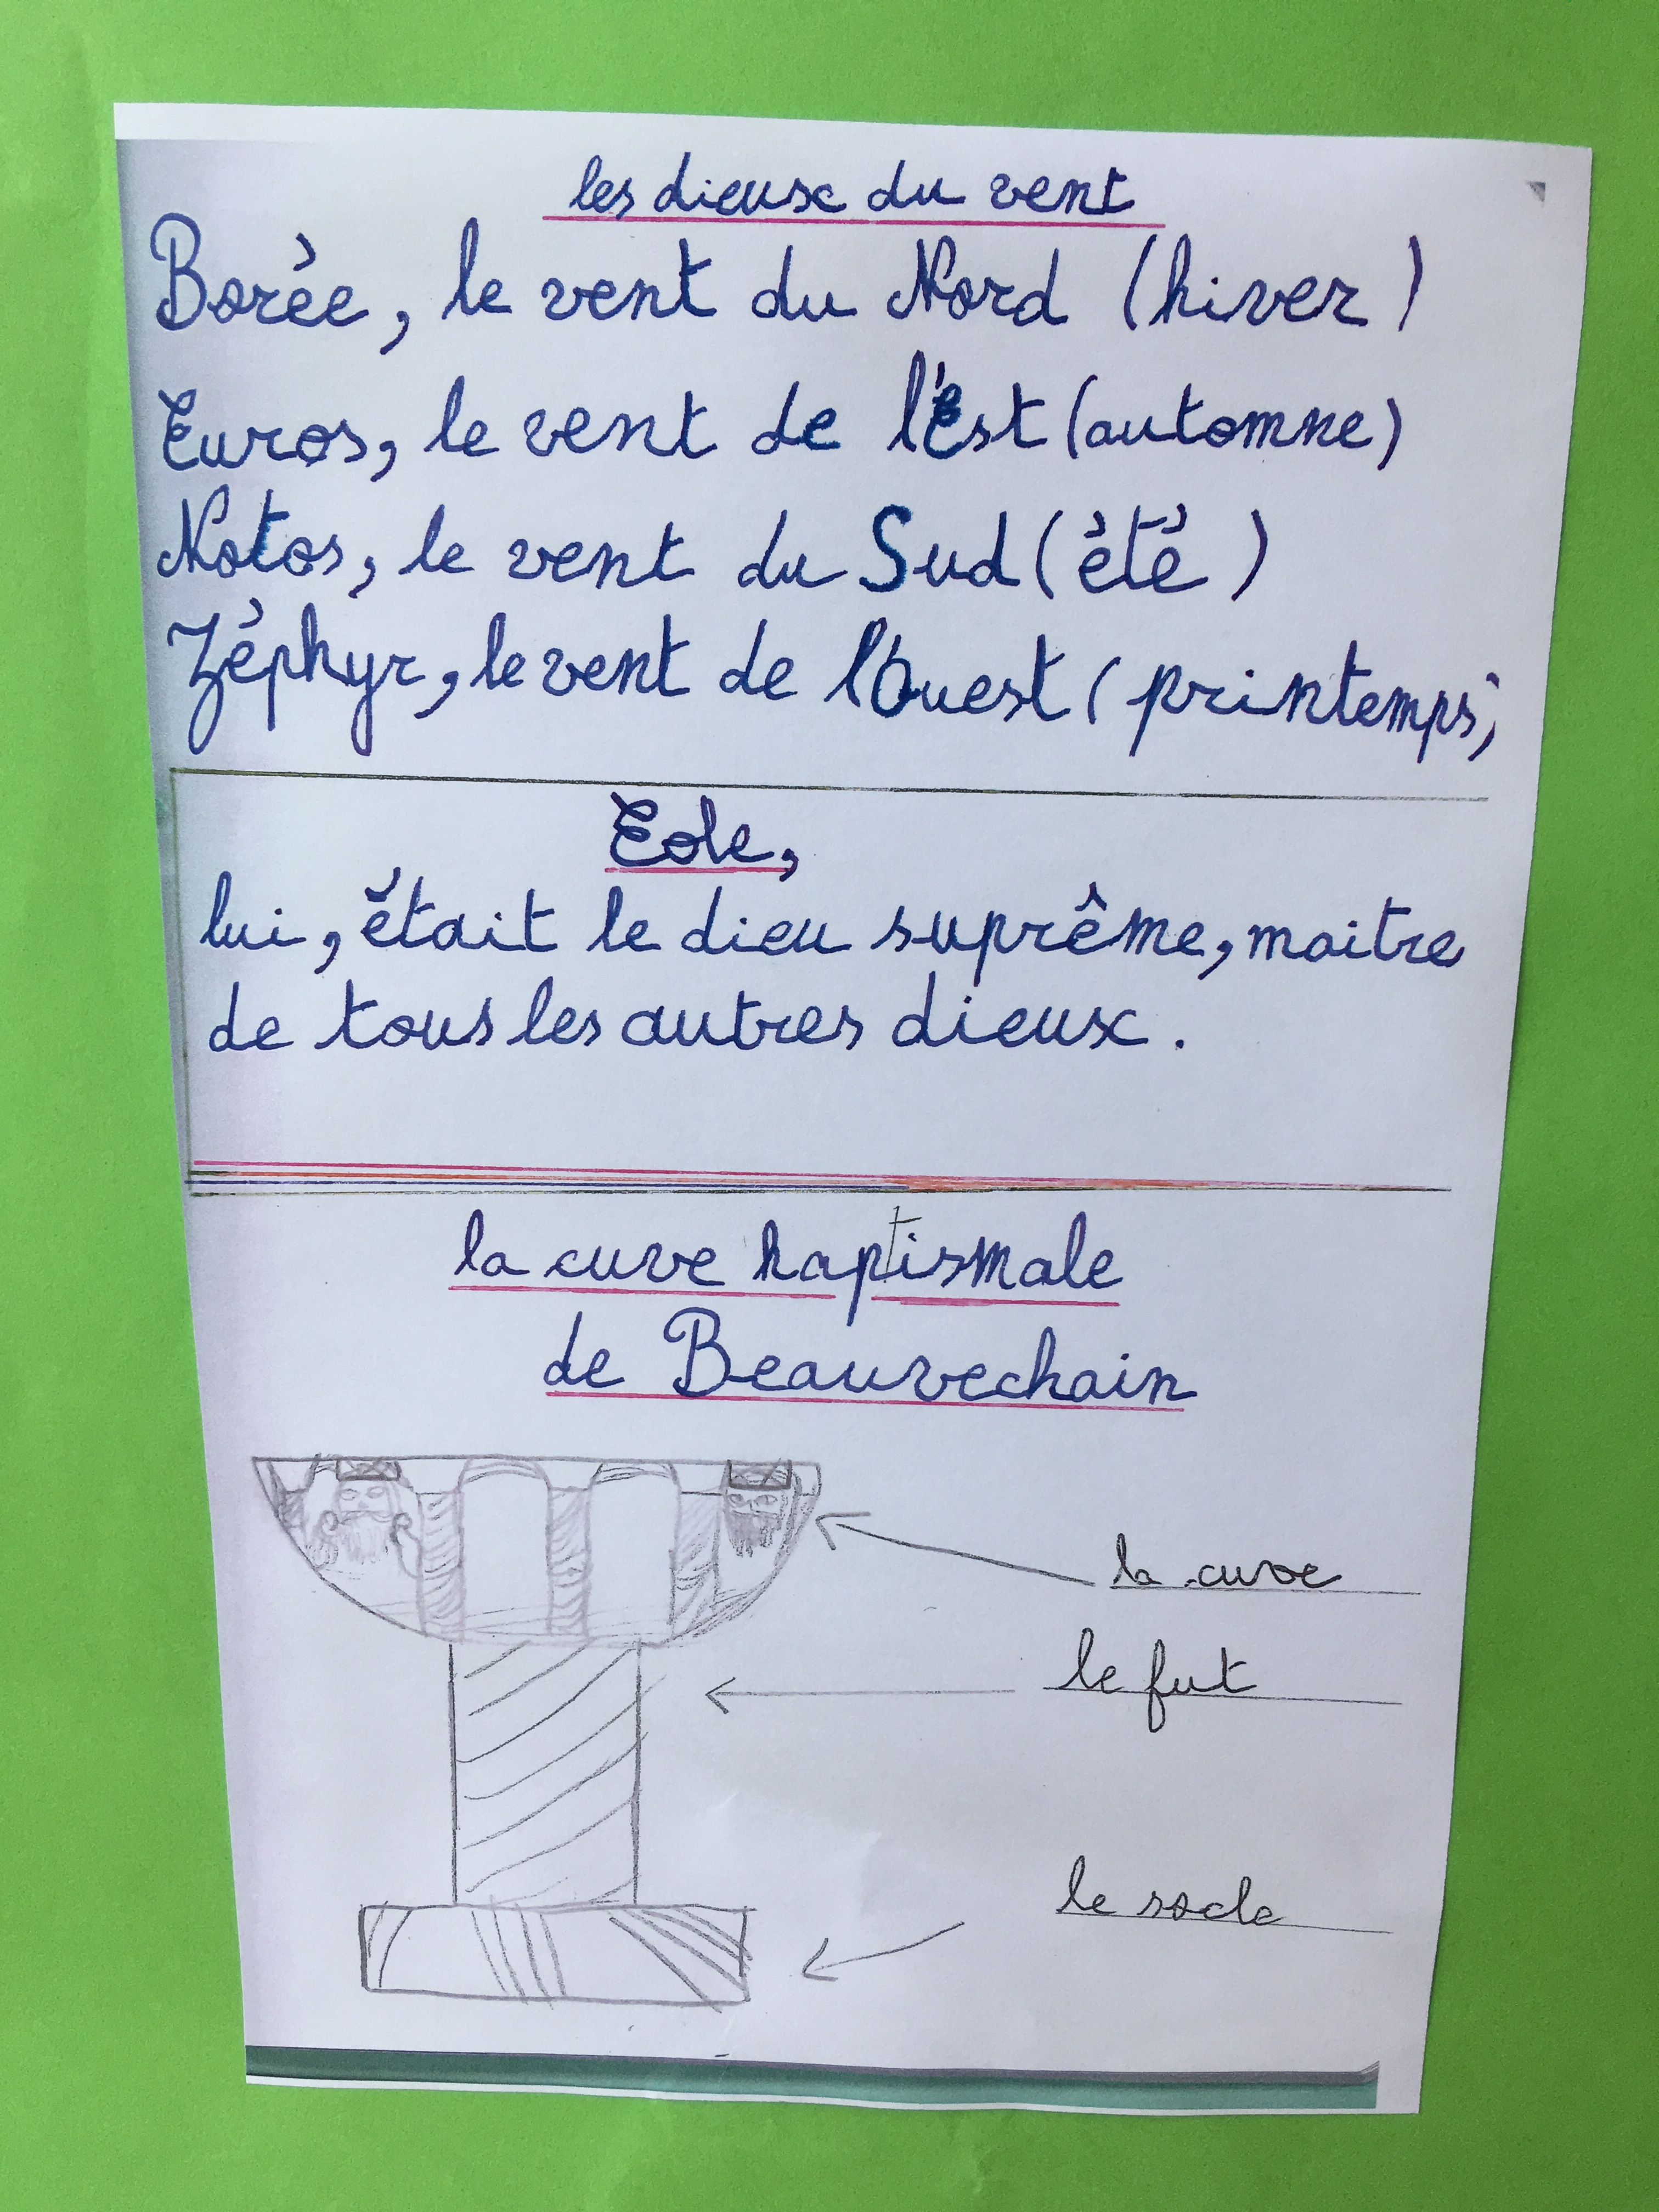 les dieux du vent
Borée, le vent du Nord (hiver)
Euros, le vent de l'Est (automne)
Notos, le vent du Sud (été)
Zéphyr, le vent de l'Ouest (printemps)
Eole,
lui, était le dieu suprême, maitre
de tous les autres dieux.
la cuve baptismale
de Beauvechain
la cuve
le fut
le socle